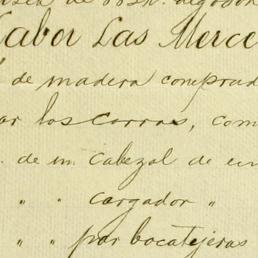 de algodon
Labor Las Merce
de madera comprad
ar los carros, com
. de un cabezal de un
" " cargador "
" " par bocatejeras